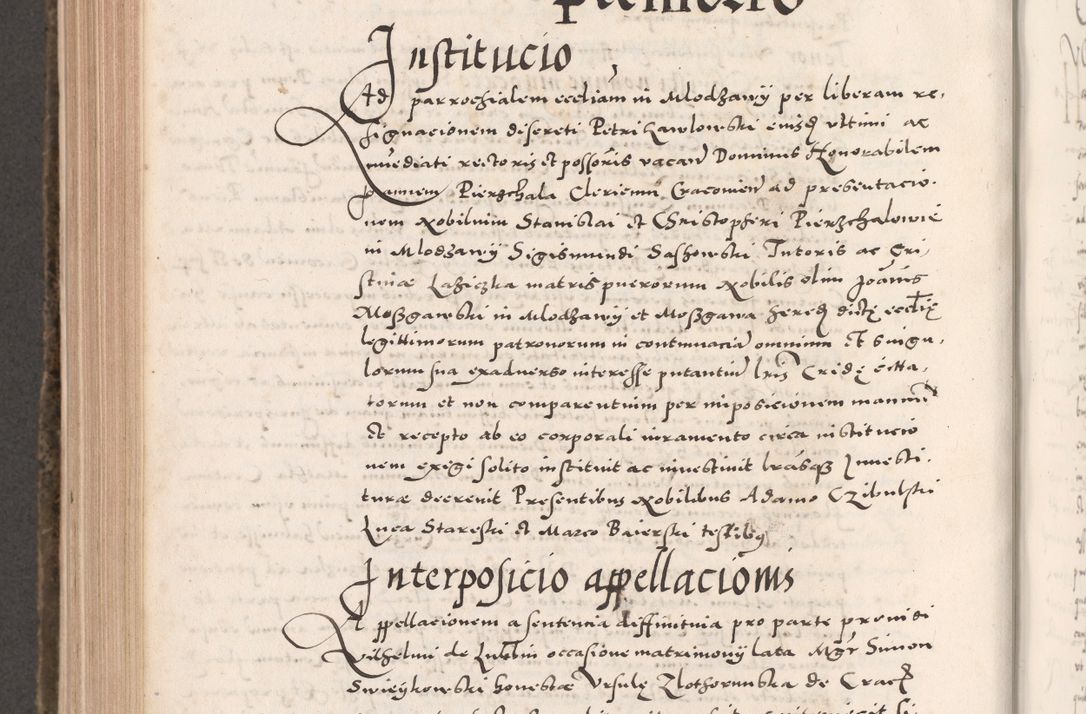 Institucio
Ad parrochialem eccliam in Mlodzawy per liberam re,
signacionem discreti Petri Kawlowski eiusd ultimi ac
immediati rectoris et possoris vacan Dominus Honorabilem
Joannem Pierzchala Clericum Cracovien ad presentacio,
nem Nobilium Stanislai et Christopheri Pierzchalowie
in Mlodzawy Sigismundi Dashowski Tutoris ac Cri,
stinae Laziczka matris puerorum Nobilis olim Joannis
Moszgawski in Mlodzawy et Moszgawa hered dicte ecclie
legittimorum patronorum in contumacia omnium et singu,
lorum sua exadverso interesse putantium lris Crede citta,
torum et non comparentium per imposicionem manuum
et recepto ab eo corporali iuramento circa institucio
nem exigi solito instituit ac investivit lrasque Investi,
turae decrevit Presentibus Nobilibus Adamo Czibulski
Luca Stareski et Marco Baierski testibus
Interposicio appellacionis
Appellacionem a sentencia diffinitiva pro parte providi
Wilhelmi de Lublin occasione matrimonij lata Mgr Simon
Swieykowski honestae Ursule Zlothorunska de Crac